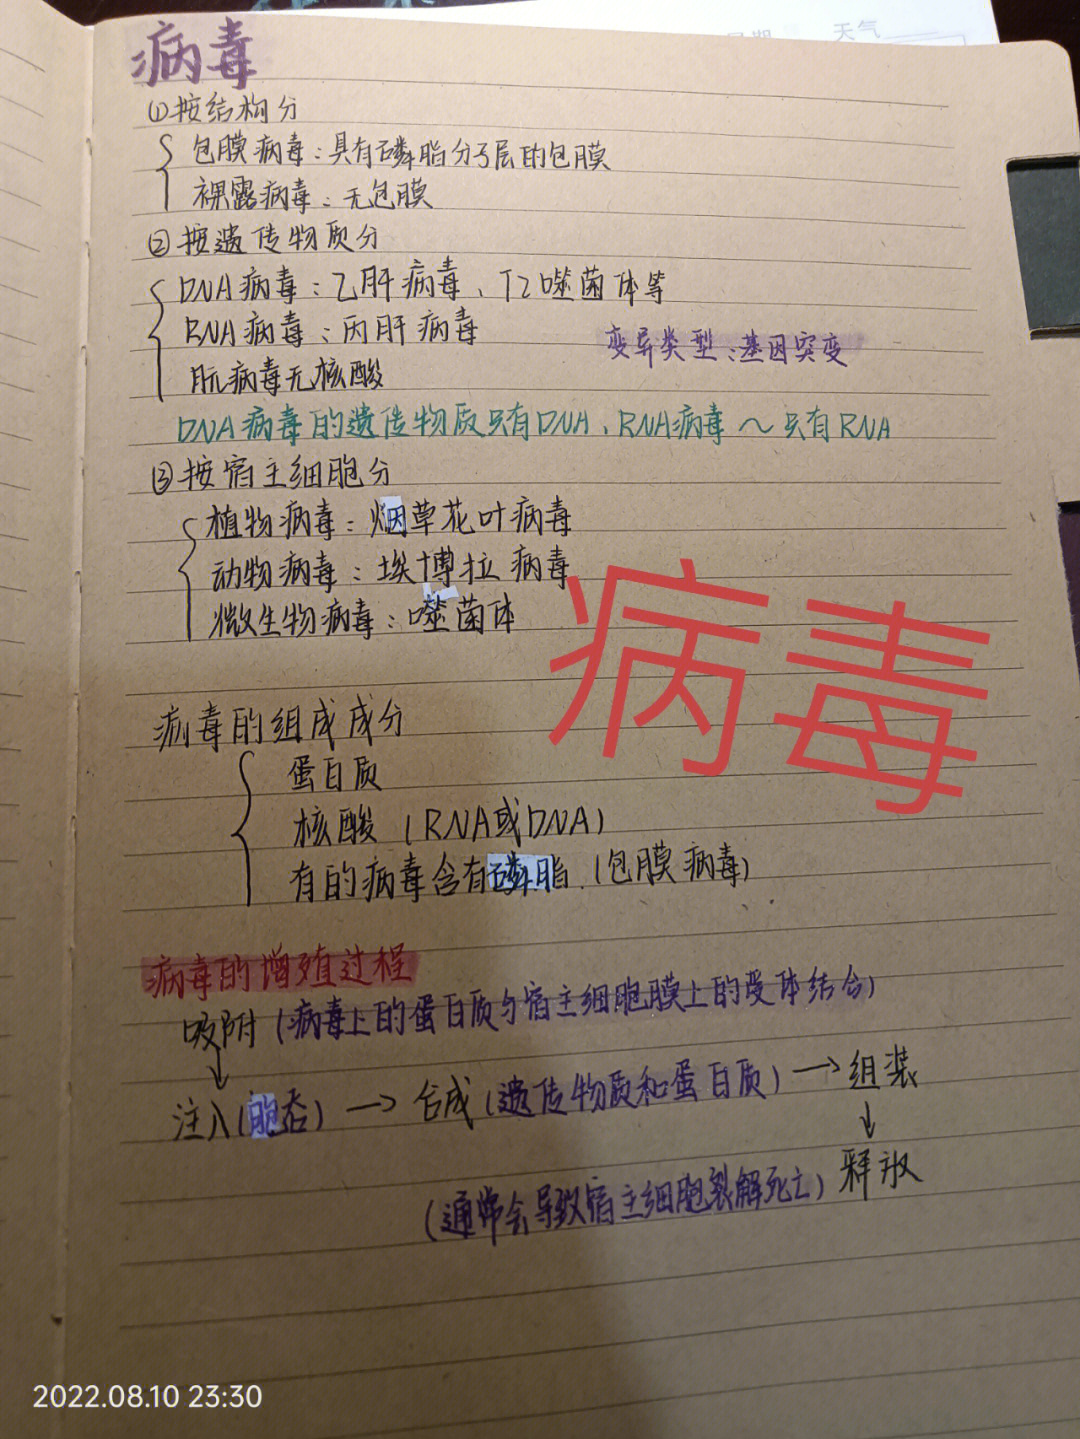 天气
病毒
①按结构分
包膜病毒：具有磷脂分子层的包膜
裸露病毒：无包膜
②按遗传物质分
DNA病毒：乙肝病毒、T2噬菌体等
RNA病毒：丙肝病毒
变异类型：基因突变
朊病毒无核酸
DNA病毒的遗传物质只有DNA，RNA病毒～只有RNA
③按宿主细胞分
植物病毒：烟草花叶病毒
动物病毒：埃博拉病毒
微生物病毒：噬菌体
病毒
病毒的组成成分
蛋白质
核酸（RNA或DNA）
有的病毒含有磷脂．（包膜病毒）
病毒的增殖过程
吸附（病毒上的蛋白质与宿主细胞膜上的受体结合）
↓
注入（胞吞）→合成（遗传物质和蛋白质）→组装
↓
释放
（通常会导致宿主细胞裂解死亡）
2022.08.10 23:30